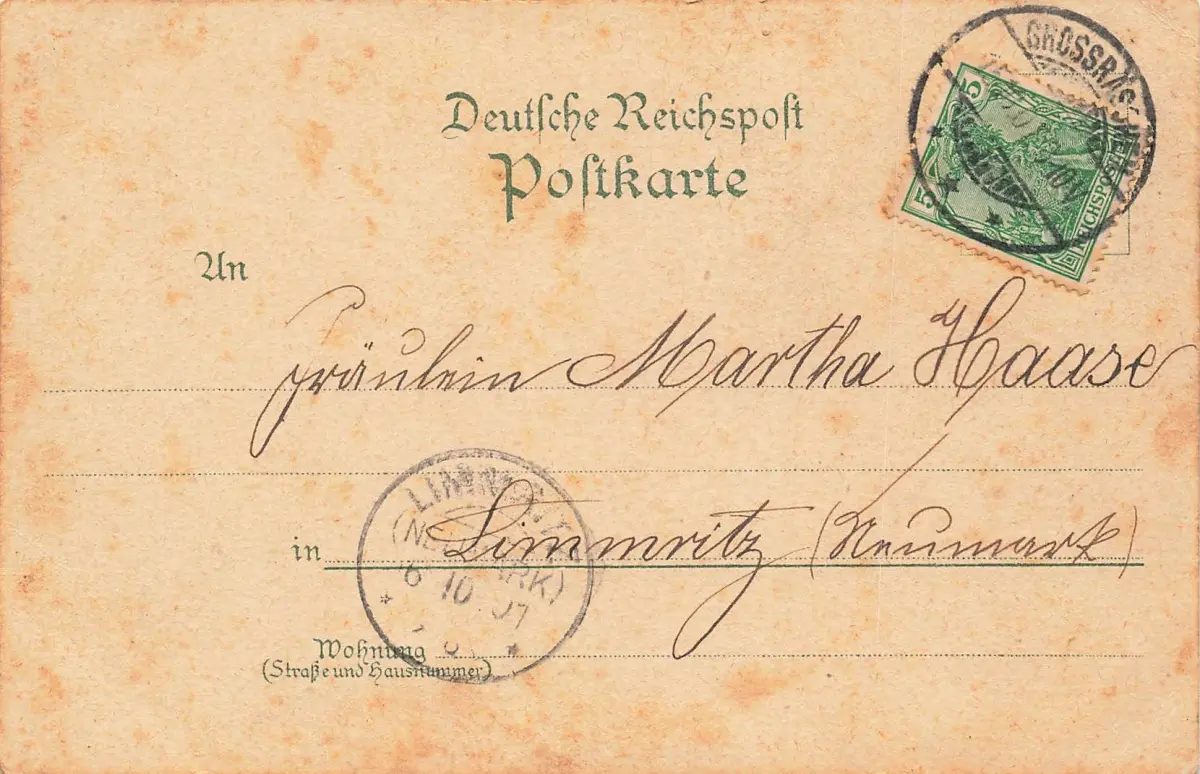 Deutsche Reichspost
Postkarte
GROSSRÄSCHEN
5
5
REICHSPOST
An
Fräulein Martha Haase
LIMMRITZ
(NEUMARK)
6 10 01
in Limmritz (Neumark)
Wohnung
(Straße und Hausnummer)